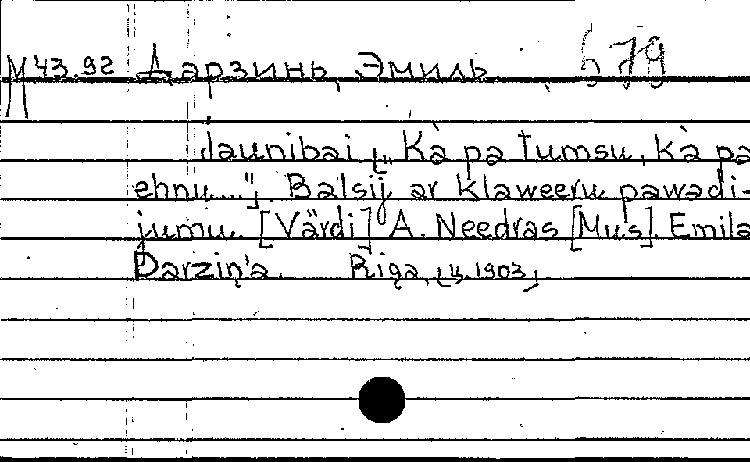 М 43.92 Дарзинь, Эмиль 579
Jaunibai [„Kà pa tumsu, kà pa
ehnu..."]. Balsij ar klaweeru pawadi-
jumu. [Vārdi] A. Needras [Mus]. Emila
Darziņ'a. Riga, [1903]